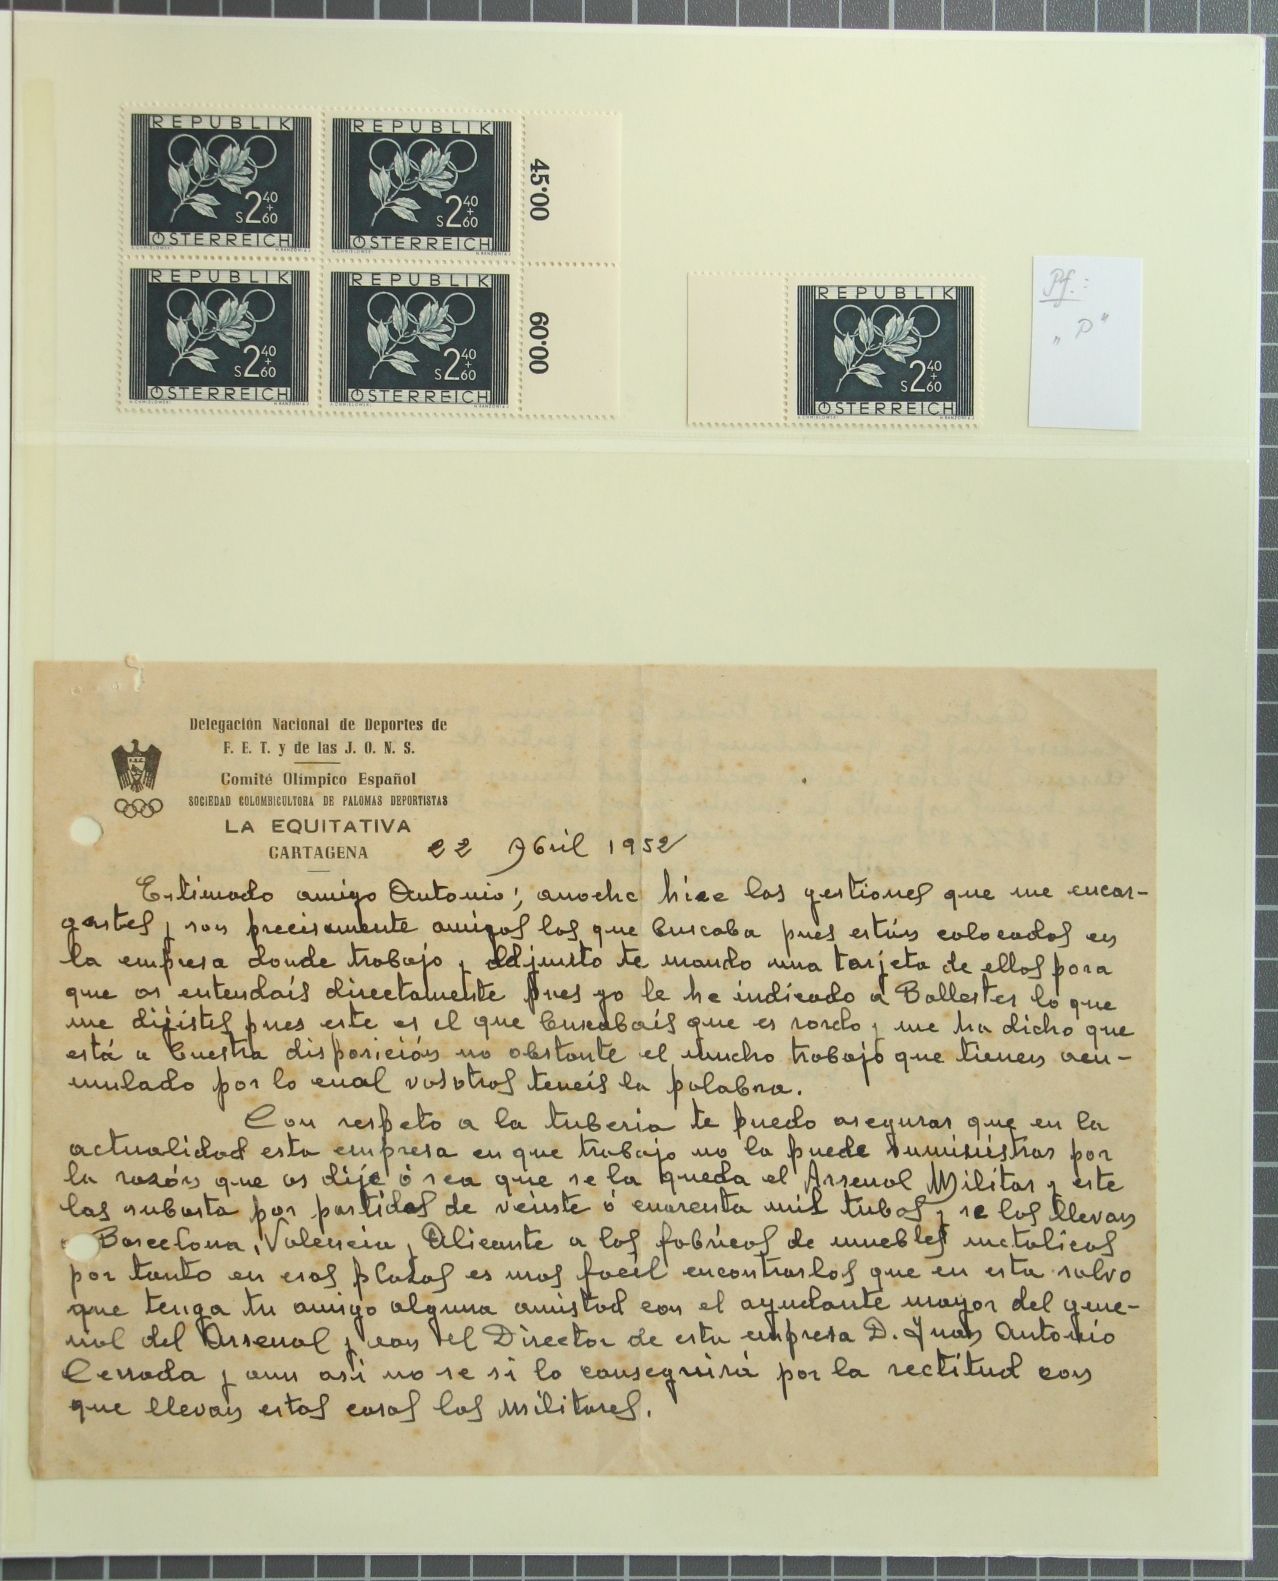 REPUBLIK
S 2 40 + 60
ÖSTERREICH
A. CHMIELOWSKI H. RANZONI d. J.
REPUBLIK
S 2 40 + 60
ÖSTERREICH
A. CHMIELOWSKI H. RANZONI d. J.
45·00
REPUBLIK
S 2 40 + 60
ÖSTERREICH
A. CHMIELOWSKI H. RANZONI d. J.
REPUBLIK
S 2 40 + 60
ÖSTERREICH
A. CHMIELOWSKI H. RANZONI d. J.
60·00
REPUBLIK
S 2 40 + 60
ÖSTERREICH
A. CHMIELOWSKI H. RANZONI d. J.
Pf.:
„P"
Delegación Nacional de Deportes de
F. E. T. y de las J. O. N. S.
Comité Olímpico Español
SOCIEDAD COLOMBICULTORA DE PALOMAS DEPORTISTAS
LA EQUITATIVA
CARTAGENA 22 Abril 1952
Estimado amigo Antonio; anoche hice las gestiones que me encar-
gastes y son precisamente amigos los que buscaba pues están colocados en
la empresa donde trabajo y adjunto te mando una tarjeta de ellos para
que os entendais directamente pues yo le he indicado a Ballester lo que
me dijistes pues este es el que buscabais que es sordo y me ha dicho que
está a buestra disposición no obstante el mucho trabajo que tienen acu-
mulado por lo cual vosotros teneis la palabra.
Con respeto a la tuberia te puedo asegurar que en la
actualidad esta empresa en que trabajo no la puede suministrar por
la razón que os dije ó sea que se la queda el Arsenal Militar y este
las subasta por partidas de veinte ó cuarenta mil tubos y se los llevan
Barcelona, Valencia y Alicante a los fabricas de muebles metalicos
por tanto en esas plazas es mas facil encontrarlos que en esta salvo
que tenga tu amigo alguna amistad con el ayudante mayor del gene-
ral del Arsenal y con el Director de esta empresa D. Juan Antonio
Cerrada y aun asi no se si lo conseguirá por la rectitud con
que llevan estas cosas los militares.